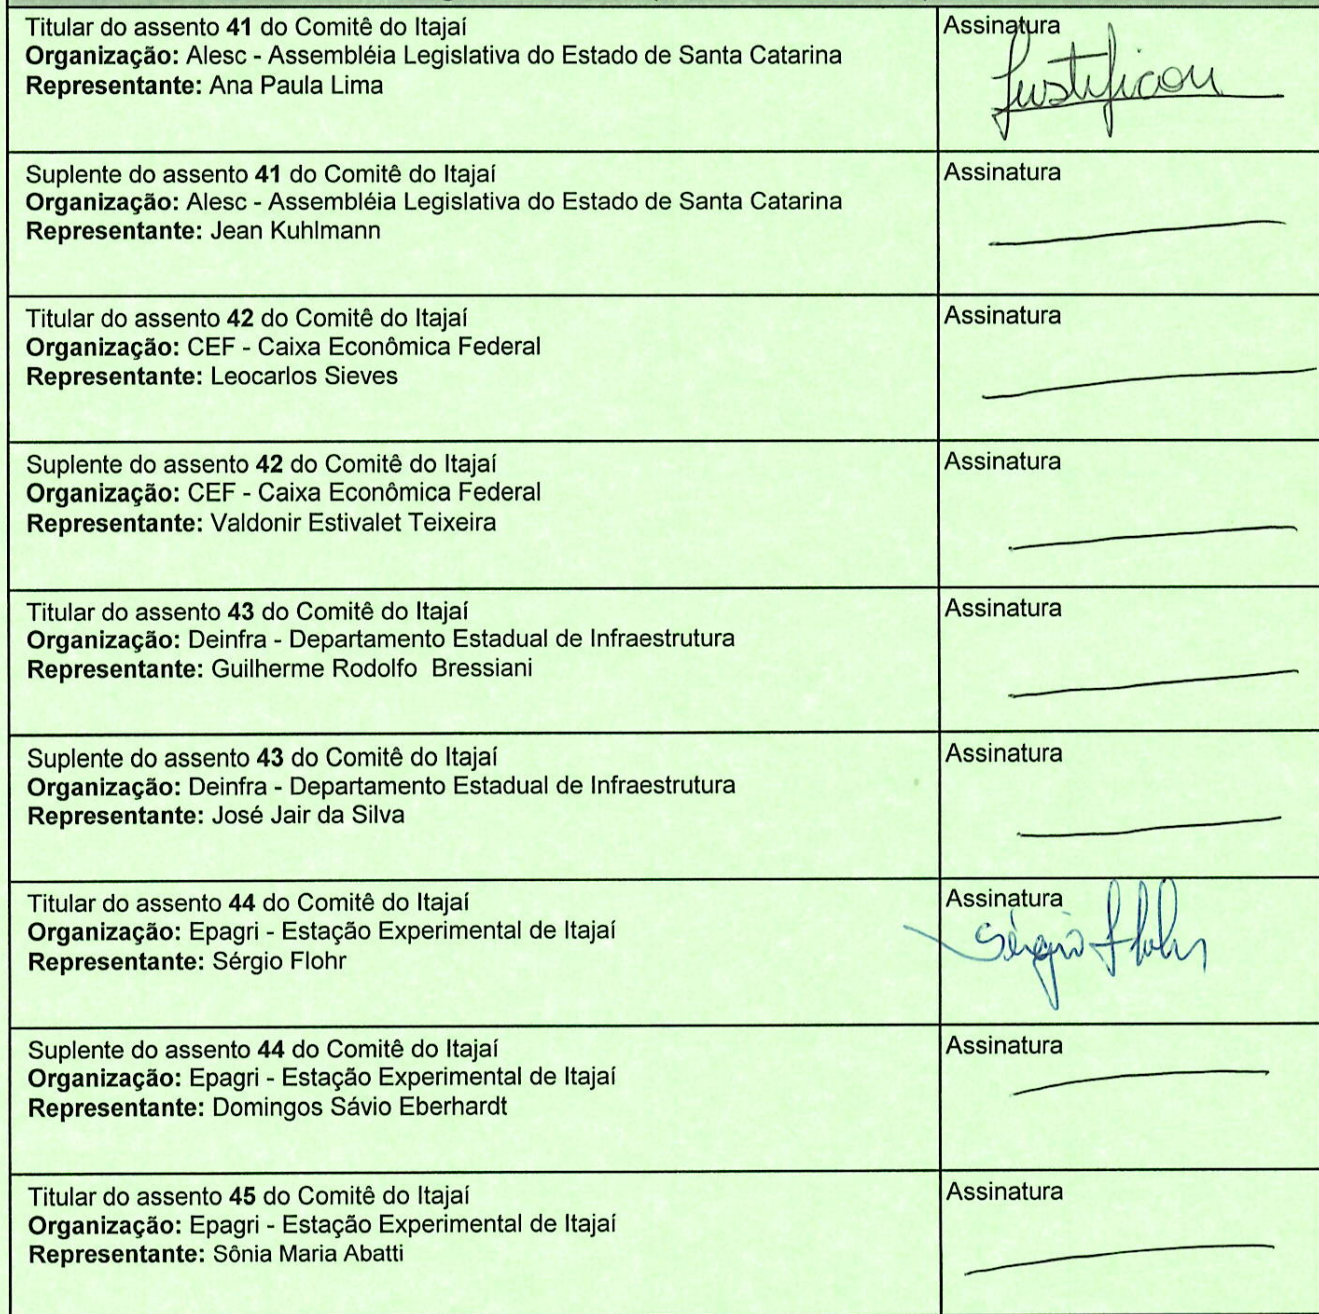 Titular do assento 41 do Comitê do Itajaí
Organização: Alesc - Assembléia Legislativa do Estado de Santa Catarina
Representante: Ana Paula Lima
Assinatura
Justificou
Suplente do assento 41 do Comitê do Itajaí
Organização: Alesc - Assembléia Legislativa do Estado de Santa Catarina
Representante: Jean Kuhlmann
Assinatura
Titular do assento 42 do Comitê do Itajaí
Organização: CEF - Caixa Econômica Federal
Representante: Leocarlos Sieves
Assinatura
Suplente do assento 42 do Comitê do Itajaí
Organização: CEF - Caixa Econômica Federal
Representante: Valdonir Estivalet Teixeira
Assinatura
Titular do assento 43 do Comitê do Itajaí
Organização: Deinfra - Departamento Estadual de Infraestrutura
Representante: Guilherme Rodolfo  Bressiani
Assinatura
Suplente do assento 43 do Comitê do Itajaí
Organização: Deinfra - Departamento Estadual de Infraestrutura
Representante: José Jair da Silva
Assinatura
Titular do assento 44 do Comitê do Itajaí
Organização: Epagri - Estação Experimental de Itajaí
Representante: Sérgio Flohr
Assinatura
Sérgio Flohr
Suplente do assento 44 do Comitê do Itajaí
Organização: Epagri - Estação Experimental de Itajaí
Representante: Domingos Sávio Eberhardt
Assinatura
Titular do assento 45 do Comitê do Itajaí
Organização: Epagri - Estação Experimental de Itajaí
Representante: Sônia Maria Abatti
Assinatura